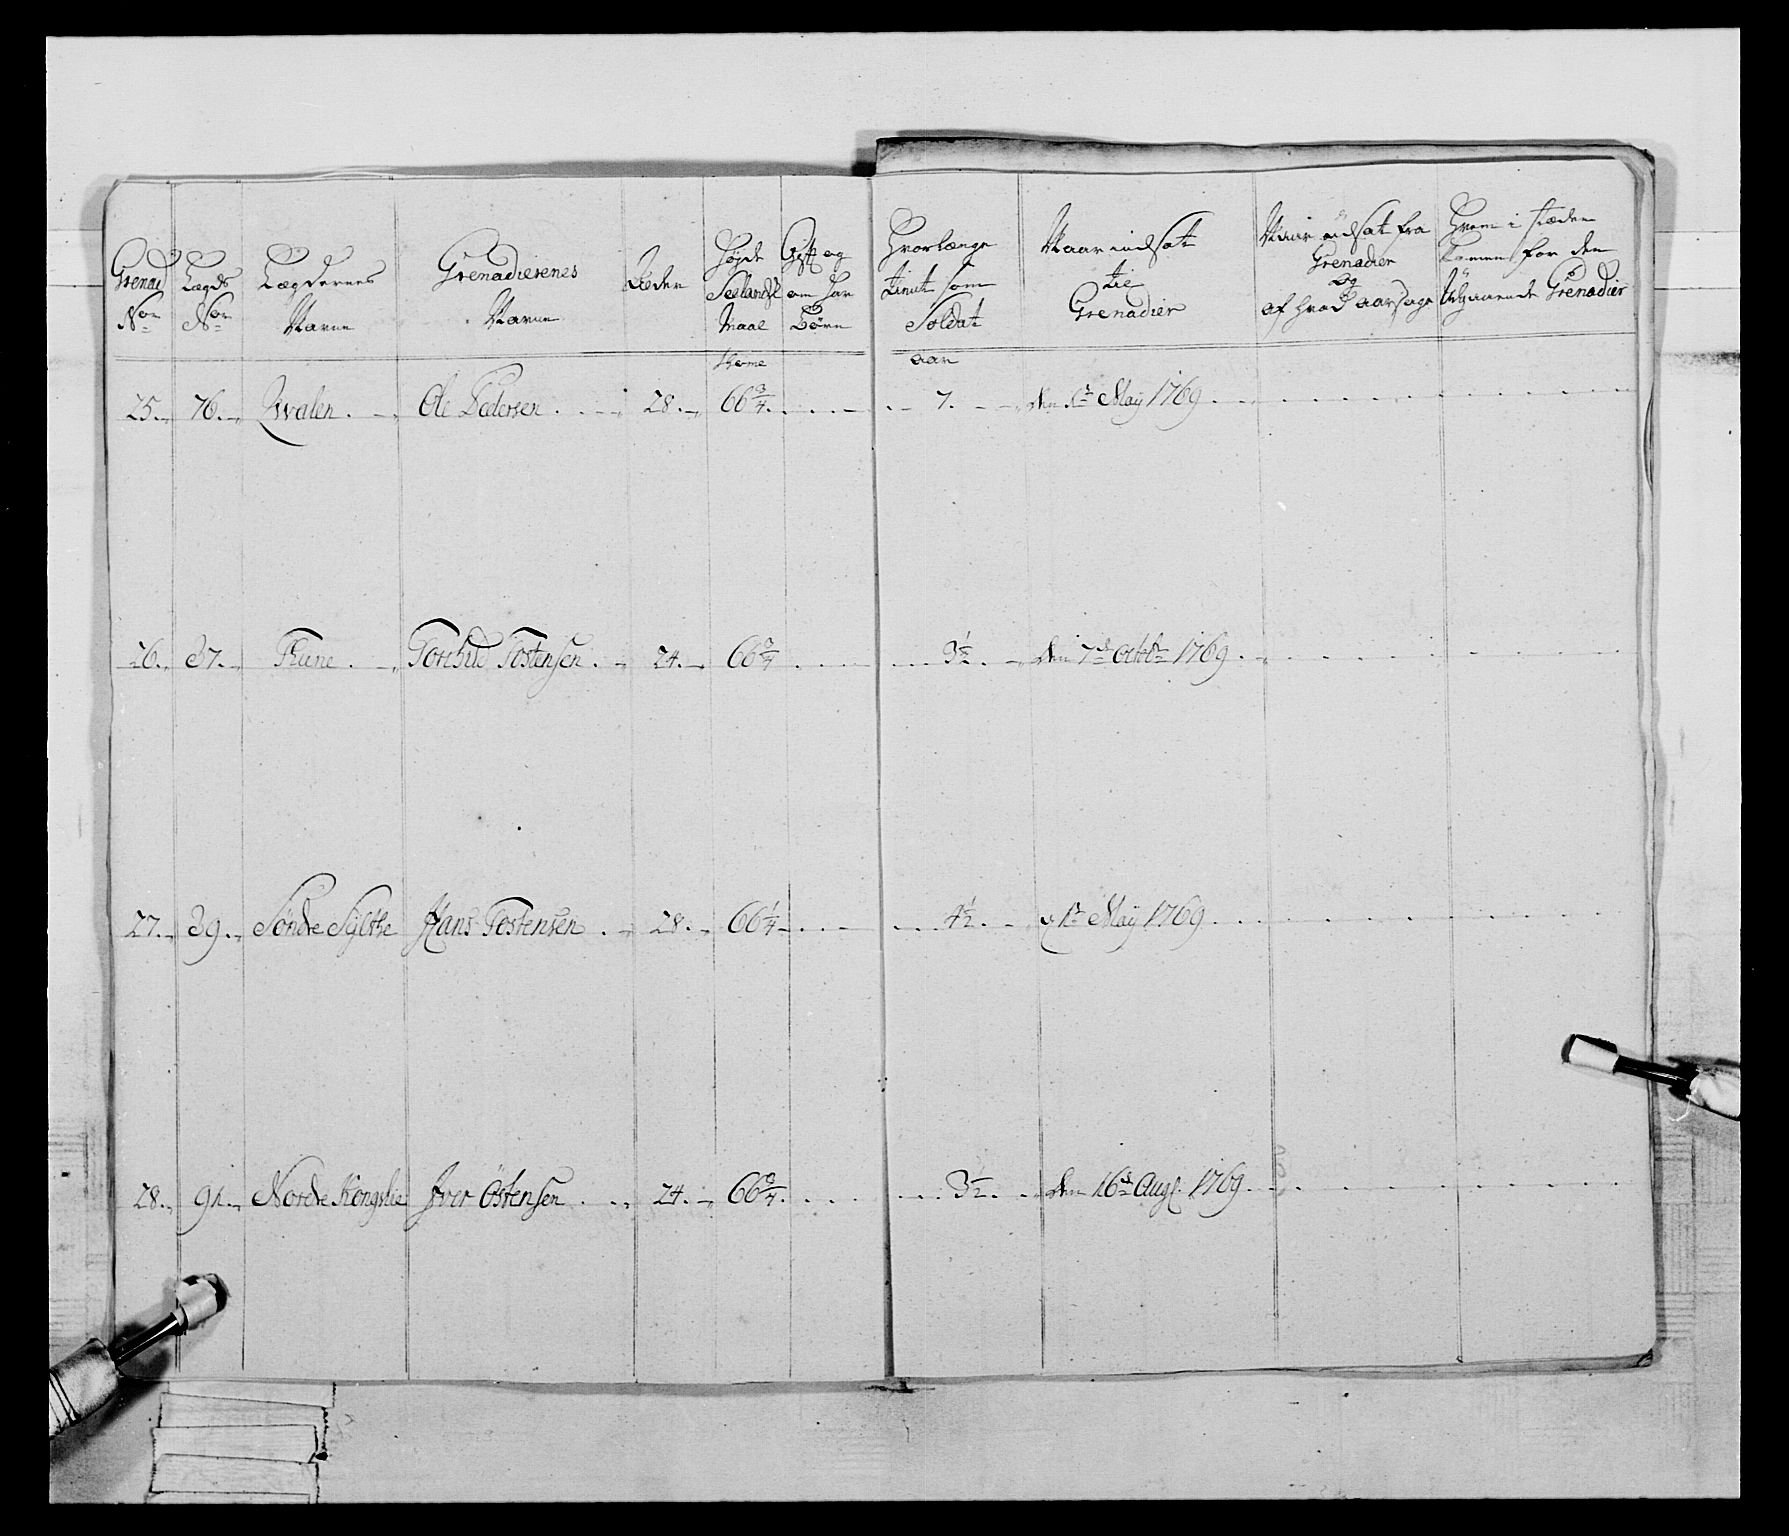 Grenad Non
Lægds Non
Lægdernes Navne
Grenadierenes Navne
Alder
Højde Seelandsk Maal
Gift og om har Børn
Hvorlænge tient som Soldat
Naar indsat til Grenadier
Naar udsat fra Grenadier og af hvad aarsage
Hvem i stæden kommen for den Udgaaende Grenadier
Tomme
aar
25. 76. Qvalen. Ole Pedersen. 28. 66 3/4. 7. den 1te Maÿ 1769.
26. 87. Thune. Torchil Tostensen. 24. 66 3/4 3 1/2. den 7de octbr 1769.
27. 89. Söndre Sÿlthe Hans Tostensen. 28. 66 1/4 4 1/2. d 1te Maÿ 1769.
28. 91. Nordre Kongslie Iver Östensen. 24. 66 3/4. 3 1/2. den 16de Aug. 1769.